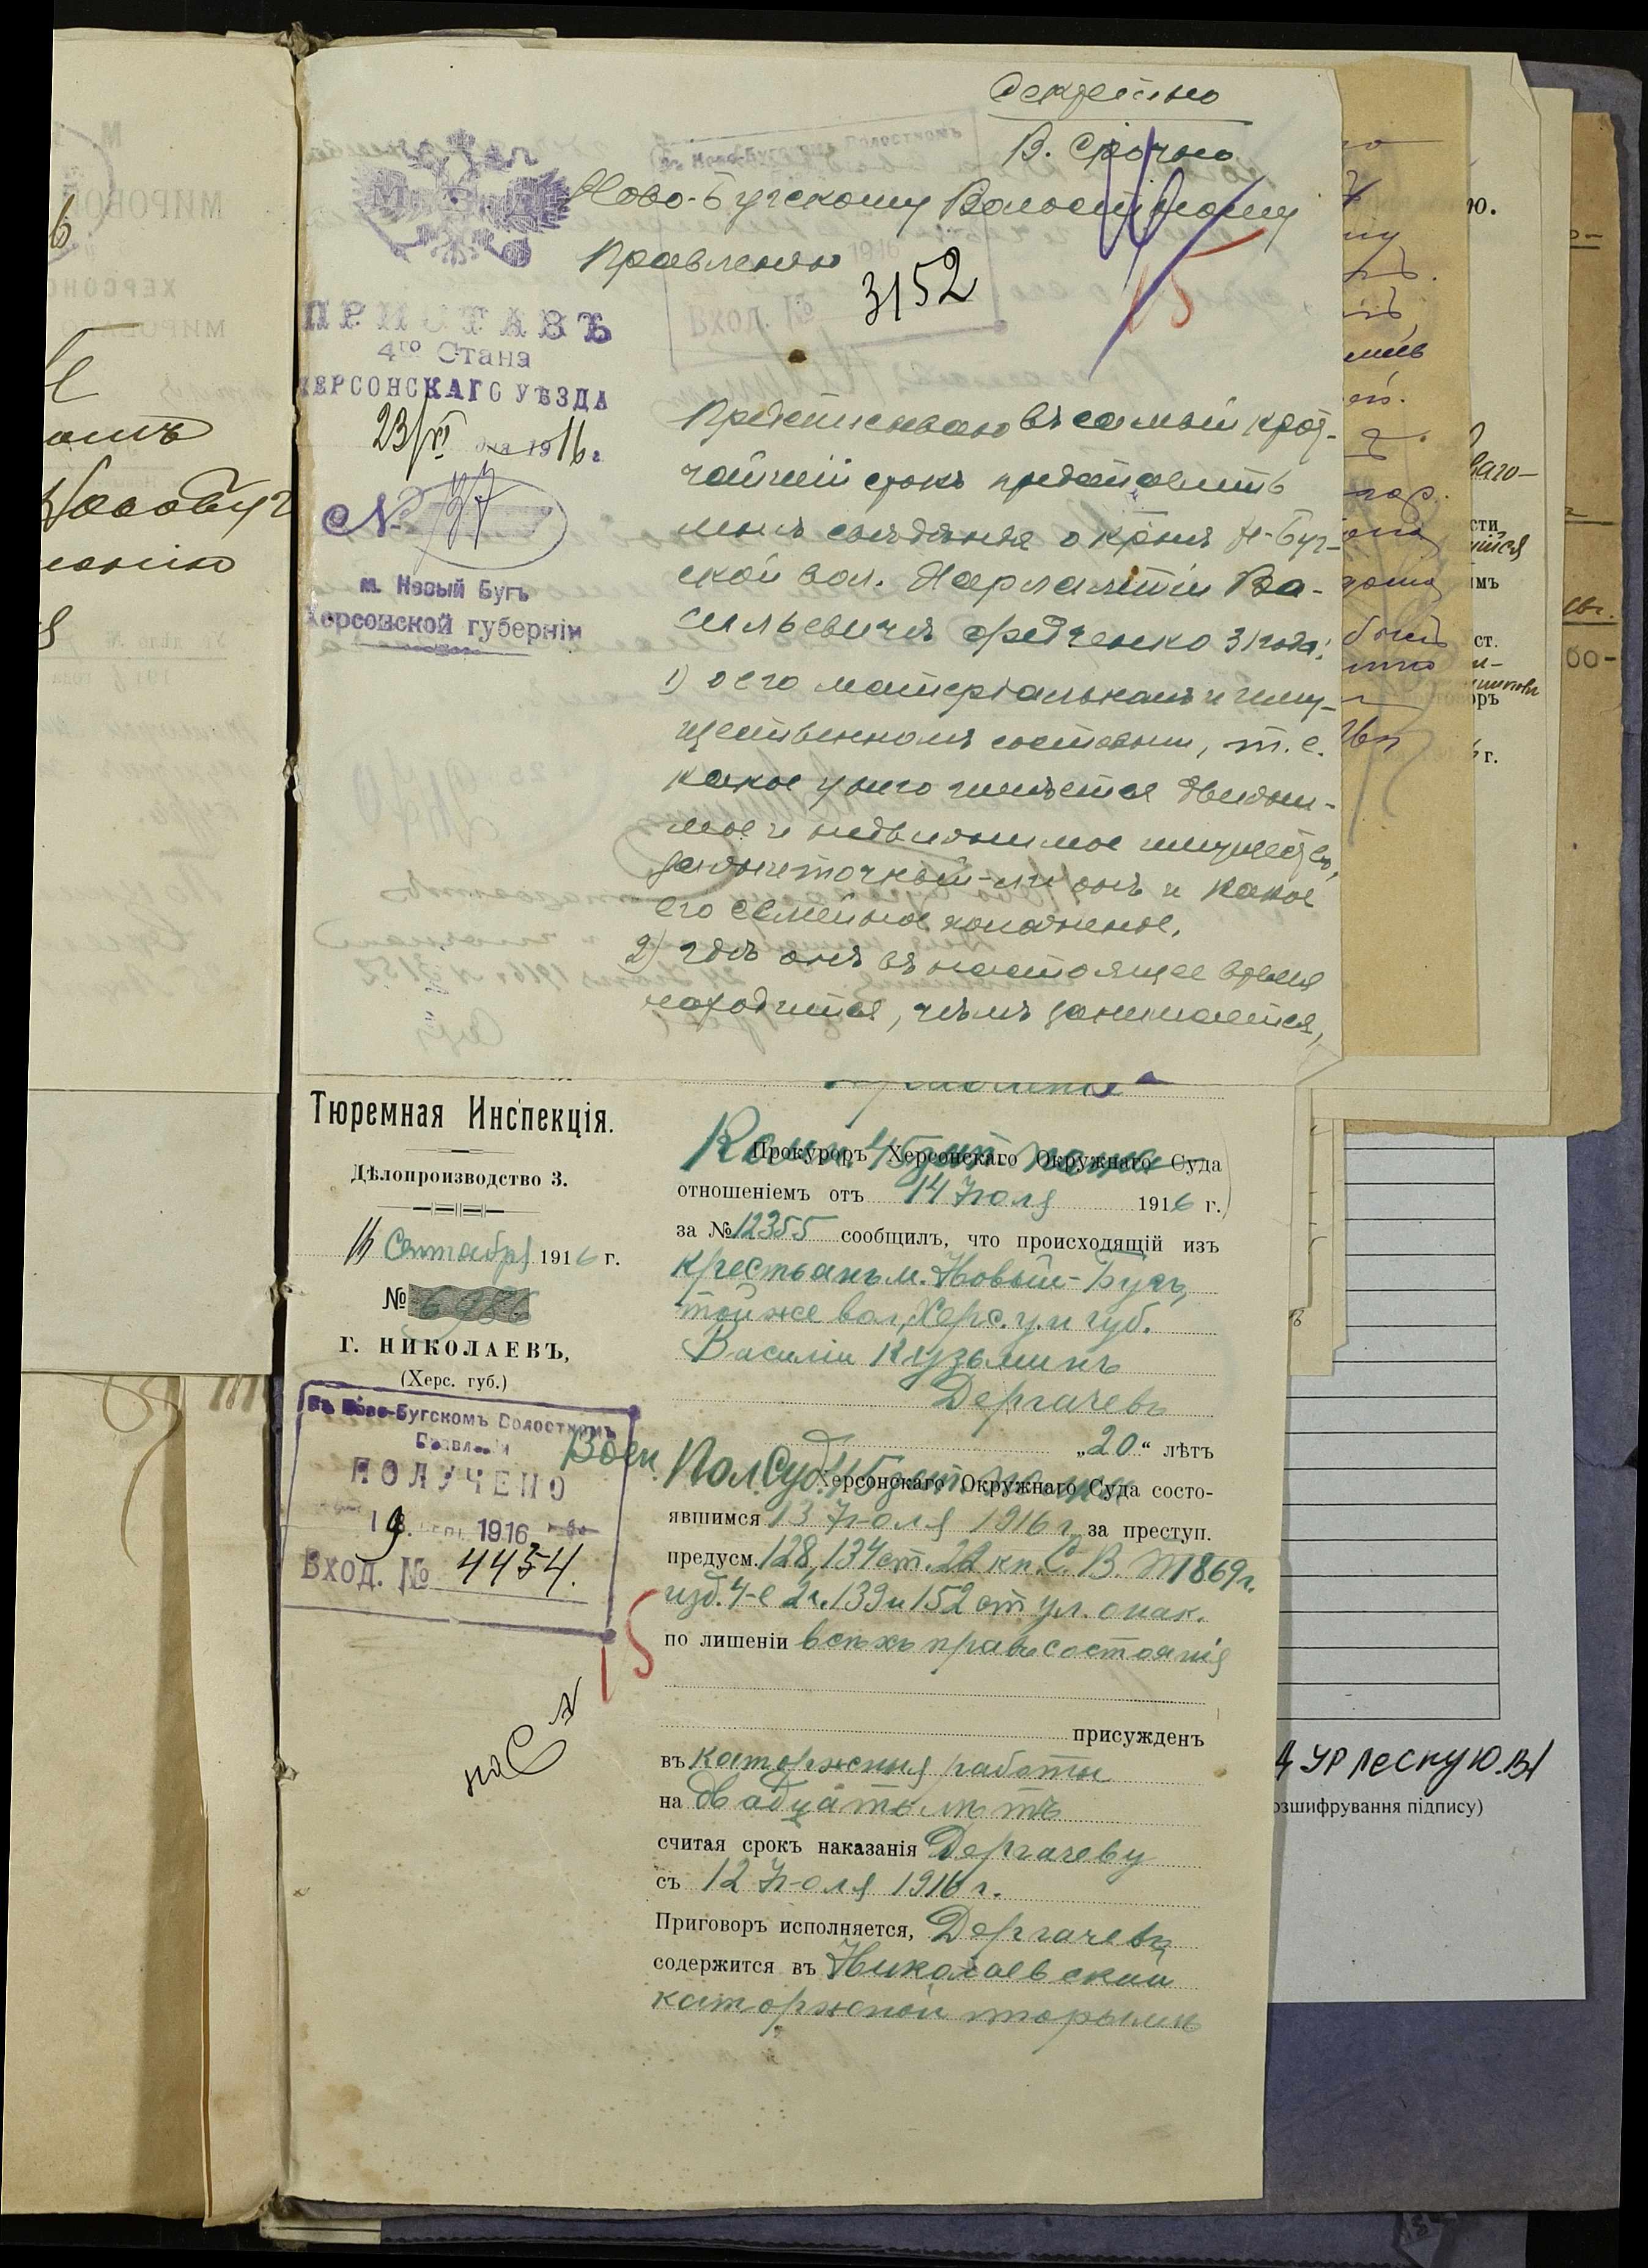 Секретно
В. Срочно
Ново-Бугскому Волостному
Правленію
М В Д
ПРИСТАВЪ
4го Стана
ХЕРСОНСКАГО УѢЗДА
23/VI дня 1916 г.
№ 197
м. Новый Бугъ
Херсонской губерніи
Вход. № 3152
15
Предписываю въ самый крат-
чайшій срокъ представить
мнѣ свѣдѣнія о кр-нѣ Н-Буг-
ской вол. Харлампіи Ва-
сильевичѣ Федченко 31 года:
1) о его матеріальномъ и иму-
щественномъ состояніи, т.е.
какое у него имѣется движи-
мое и недвижимое имущество,
зажиточный-ли онъ и какое
его семейное положеніе.
2) гдѣ онъ въ настоящее время
находится, чѣмъ занимается,
Тюремная Инспекція.
Дѣлопроизводство 3.
Сентября 1916 г.
№ 6986
Г. НИКОЛАЕВЪ,
(Херс. губ.)
Въ Ново-Бугскомъ Волостномъ
Правленіи
ПОЛУЧЕНО
19 1916
Вход. № 4454.
15
Прокуроръ Херсонскаго Окружнаго Суда
отношеніемъ отъ 14 Іюля 1916 г.
за № 12355 сообщилъ, что происходящій изъ
крестьянъ м. Новый-Бугъ,
той же вол., Херс. у. и губ.
Василій Кузьминъ
Дергачевъ
„20“ лѣтъ
Воен. Пол Суд. Херсонскаго Окружнаго Суда состо-
явшимся 13 Іюля 1916 г. за преступ.
предусм. 128, 134 ст. 22 кн. С. В. П 1869 г.
изд. 4-е 2 ч. 139 и 152 ст. ул. о нак.
по лишеніи всѣхъ правъ состоянія
присужденъ
въ каторжныя работы
на двадцать лѣтъ
считая срокъ наказанія Дергачеву
съ 12 Іюля 1916 г.
Приговоръ исполняется, Дергачевъ
содержится въ Николаевской
каторжной тюрьмѣ
розшифрування підпису)